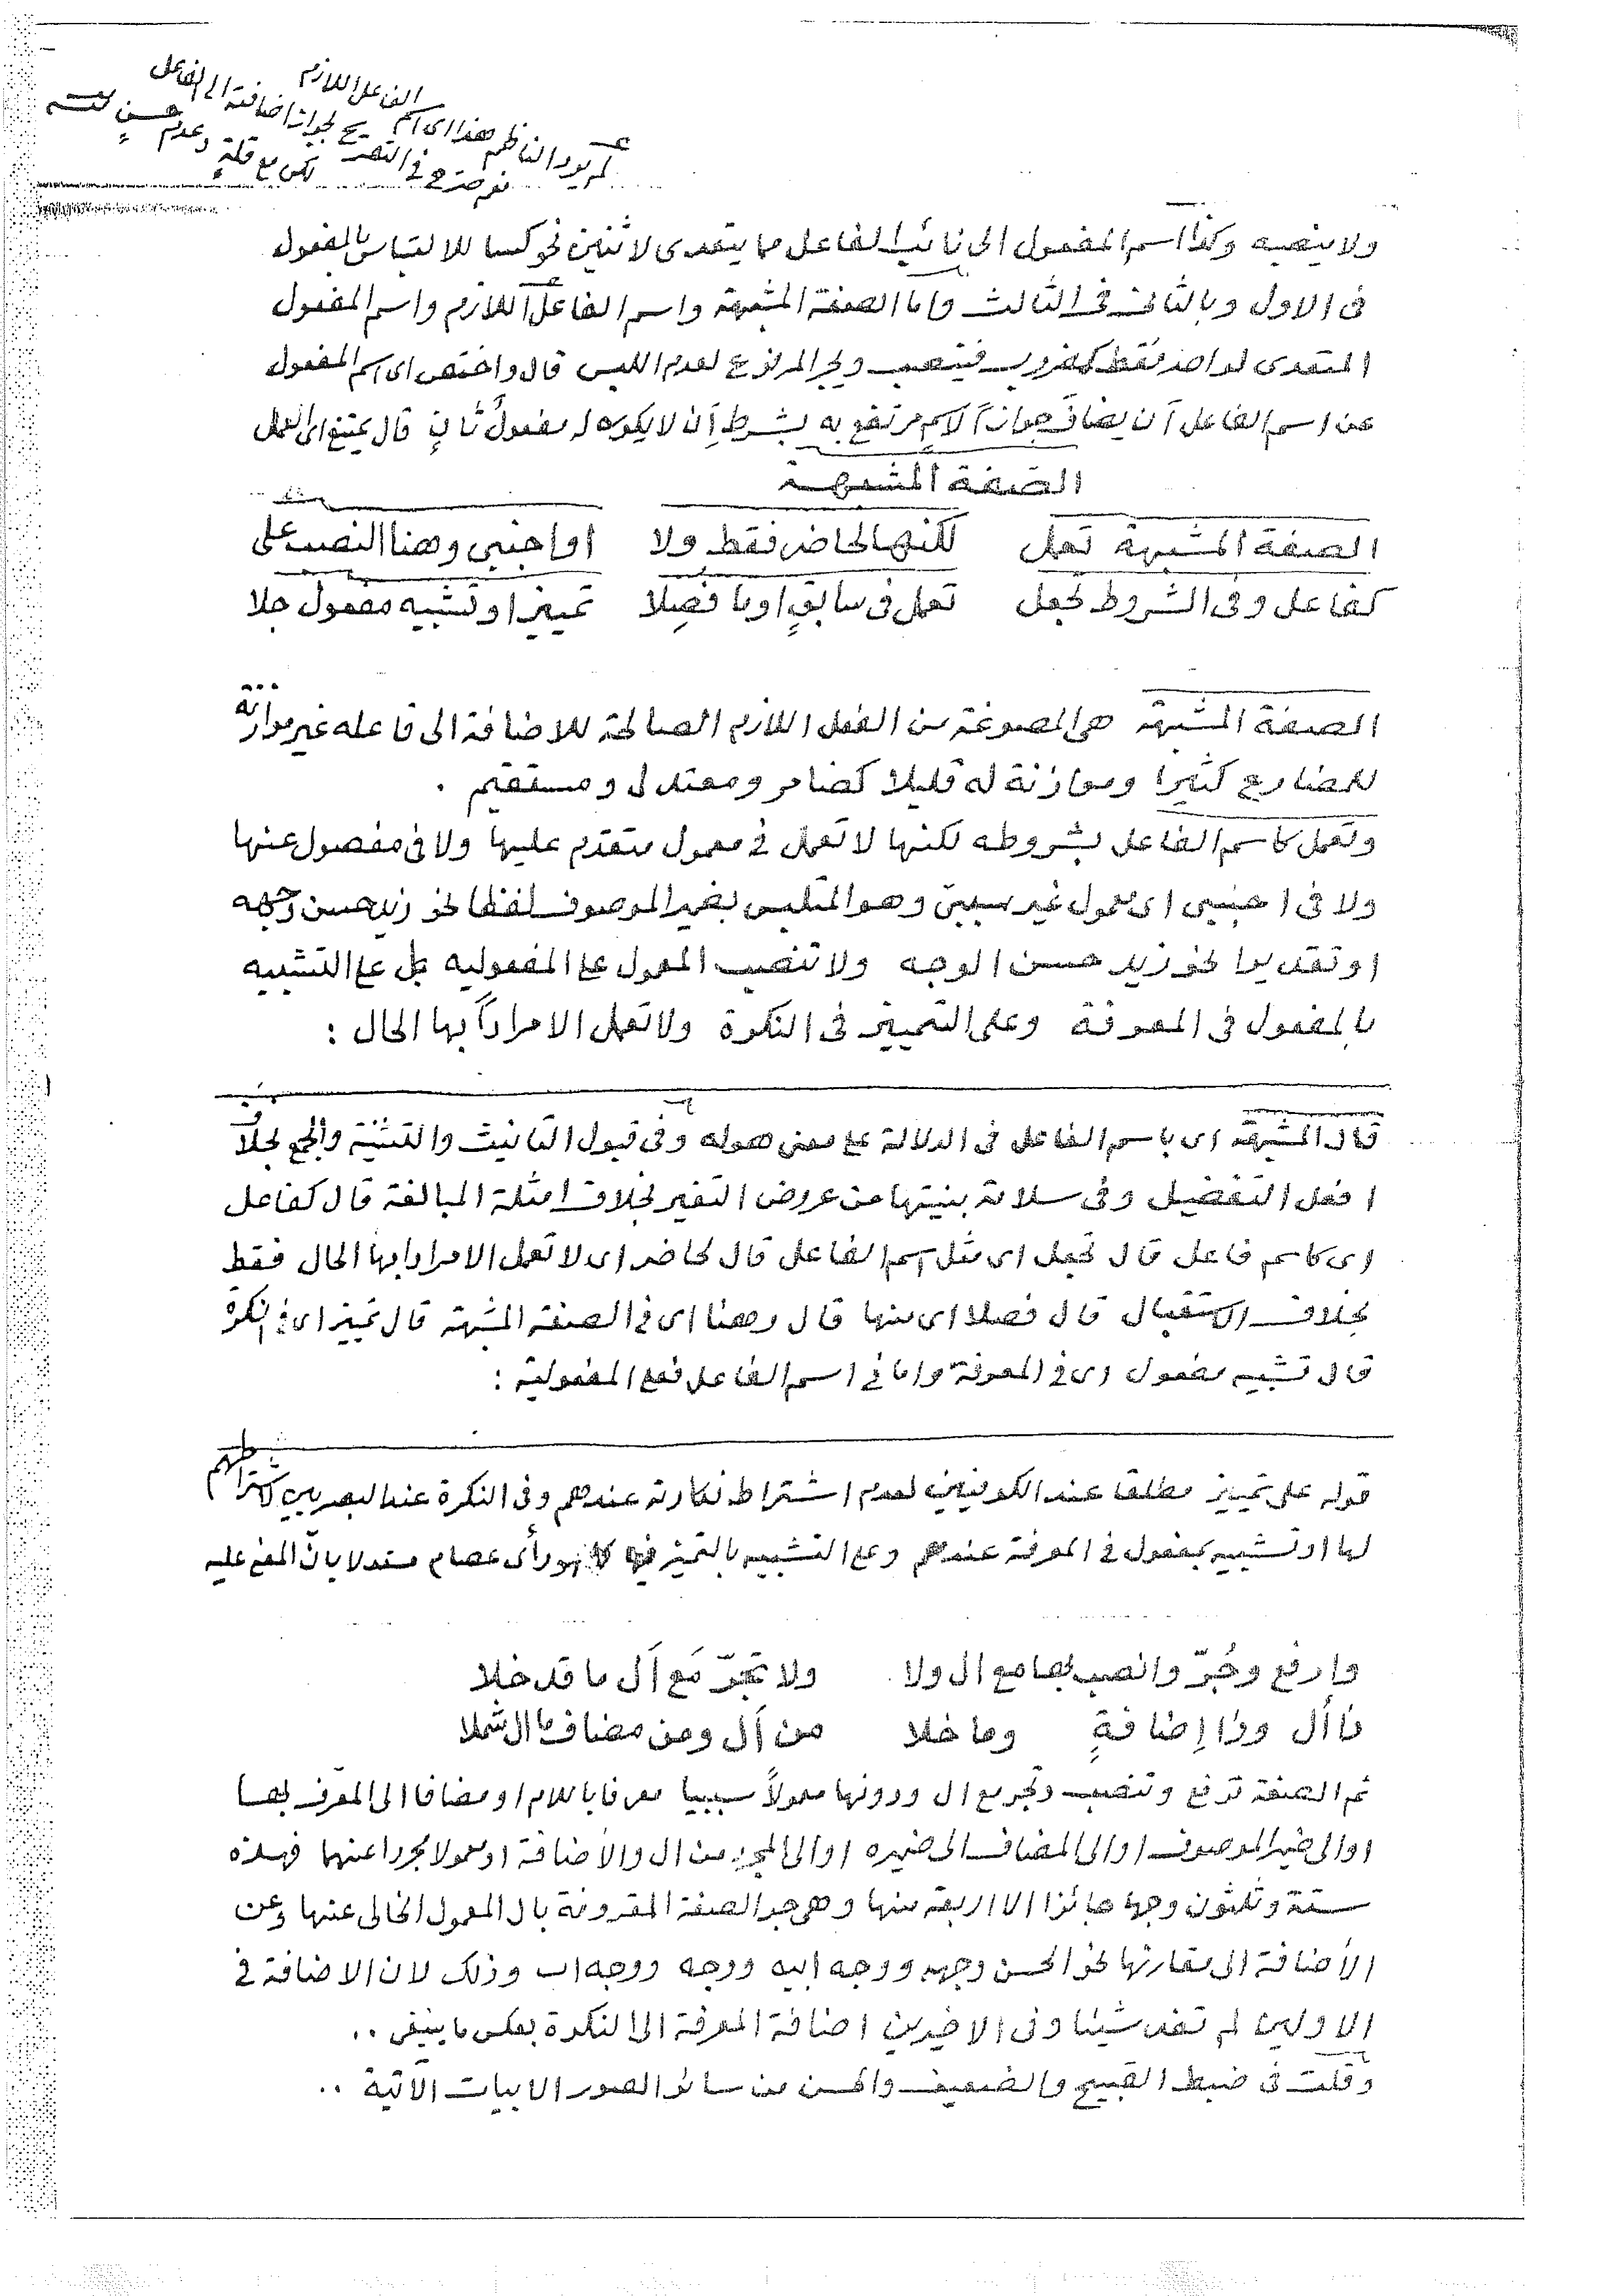 الفاعل اللازم
لم يورد الناظم هذا اى اسم لجواز اضافته الى الفاعل
نعم صرح فى لكن مع قلة وعدم حسن
ولا ينصبه وكذا اسم المفعول الى نائب الفاعل مما يتعدى لاثنين نحو كسا للالتباس بالمفعول
فى الاول وبالثانى فى الثالث واما الصفة المشبهة واسم الفاعل اللازم واسم المفعول
المتعدى لواحد فقط كمضروب فينصب ويجر المرفوع لعدم اللبس قال واختص اى اسم المفعول
عن اسم الفاعل أن يضاف جوازا لاسم مرتفع به بشرط أن لا يكون له مفعولٌ ثانٍ قال يمتنع اى العمل
الصفة المشبهة
الصفة المشبهة تعمل لكنها لحاضر فقط ولا او اجنبى وهنا النصب على
كفاعل وفى الشروط تجعل تعمل فى سابقٍ او ما فصِلا تمييز او تشبيه مفعول جلا
الصفة المشبهة هى المصوغة من الفعل اللازم الصالحة للاضافة الى فاعله غير موازنة
للمضارع كثيرا وموازنة له قليلا كضامر ومعتدل ومستقيم .
وتعمل كاسم الفاعل بشروطه لكنها لا تعمل فى معمول متقدم عليها ولا فى مفصول عنها
ولا فى اجنبى اى معمول غير سببىّ وهو المتلبس بضمير الموصوف لفظا نحو زيد حسن وجهه
او تقديرا نحو زيد حسن الوجه ولا تنصب المعمول على المفعولية بل على التشبيه
بالمفعول فى المعرفة وعلى التمييز فى النكرة ولا تعمل الا مراداً بها الحال :
قال المشبهة اى باسم الفاعل فى الدلالة على معنى هو له وفى قبول التانيث والتثنية والجمع بخلاف
افعل التفضيل وفى سلامة بنيتها من عروض التغير بخلاف امثلة المبالغة قال كفاعل
اى كاسم فاعل قال تجعل اى مثل اسم الفاعل قال لحاضر اى لا تعمل الا مرادا بها الحال فقط
بخلاف الاستقبال قال فصلا اى منها قال وهنا اى فى الصفة المشبهة قال تمييز اى فى النكرة
قال تشبيه مفعول اى فى المعرفة واما فى اسم الفاعل فعلى المفعولية :
قوله على تمييز مطلقا عند الكوفيين لعدم اشتراط نكارته عندهم وفى النكرة عند البصريين لاشتراطهم
لها او تشبيه بمفعول فى المعرفة عندهم وعلى التشبيه بالتمييز فيها كما هو رأى عصام مستدلا بان المعنى عليه
وارفع وجُرّ وانصب بها مع ال ولا ولا تجرّ مَع أَل ما قد خلا
ذا أل وذا إضافةٍ وما خلا من أل ومن مضاف ما ال شملا
ثم الصفة ترفع وتنصب وتجر مع ال ودونها معمولاً سببيا معرفا باللام او مضافا الى المعرّف بها
او الى ضمير الموصوف او الى المضاف الى ضميره او الى المجرد من ال والأضافة او معمولا مجردا عنهما فهذه
ستة وثلثون وجها جائزا الا اربعة منها وهى جر الصفة المقرونة بال المعمول الخالى عنها وعن
الأضافة الى مقارنها نحو الحسن وجهه ووجه ابيه ووجه ووجه اب وذلك لان الاضافة فى
الاولين لم تفد شيئا وفى الاخيرين اضافة المعرفة الى النكرة بعكس ما ينبغى ..
وقلت فى ضبط القبيح والضعيف والحسن من سائر الصور الابيات الآتية ..